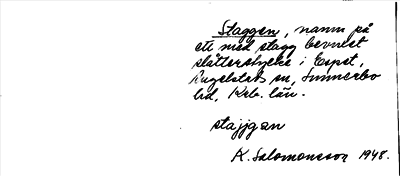 Staggen, namn på
ett med stagg bevuxet
slåtterstycke i Espet,
Angelstads sn, Sunnerbo
hd, Krb. län.
stajjgan
K. Salomonsson 1948.